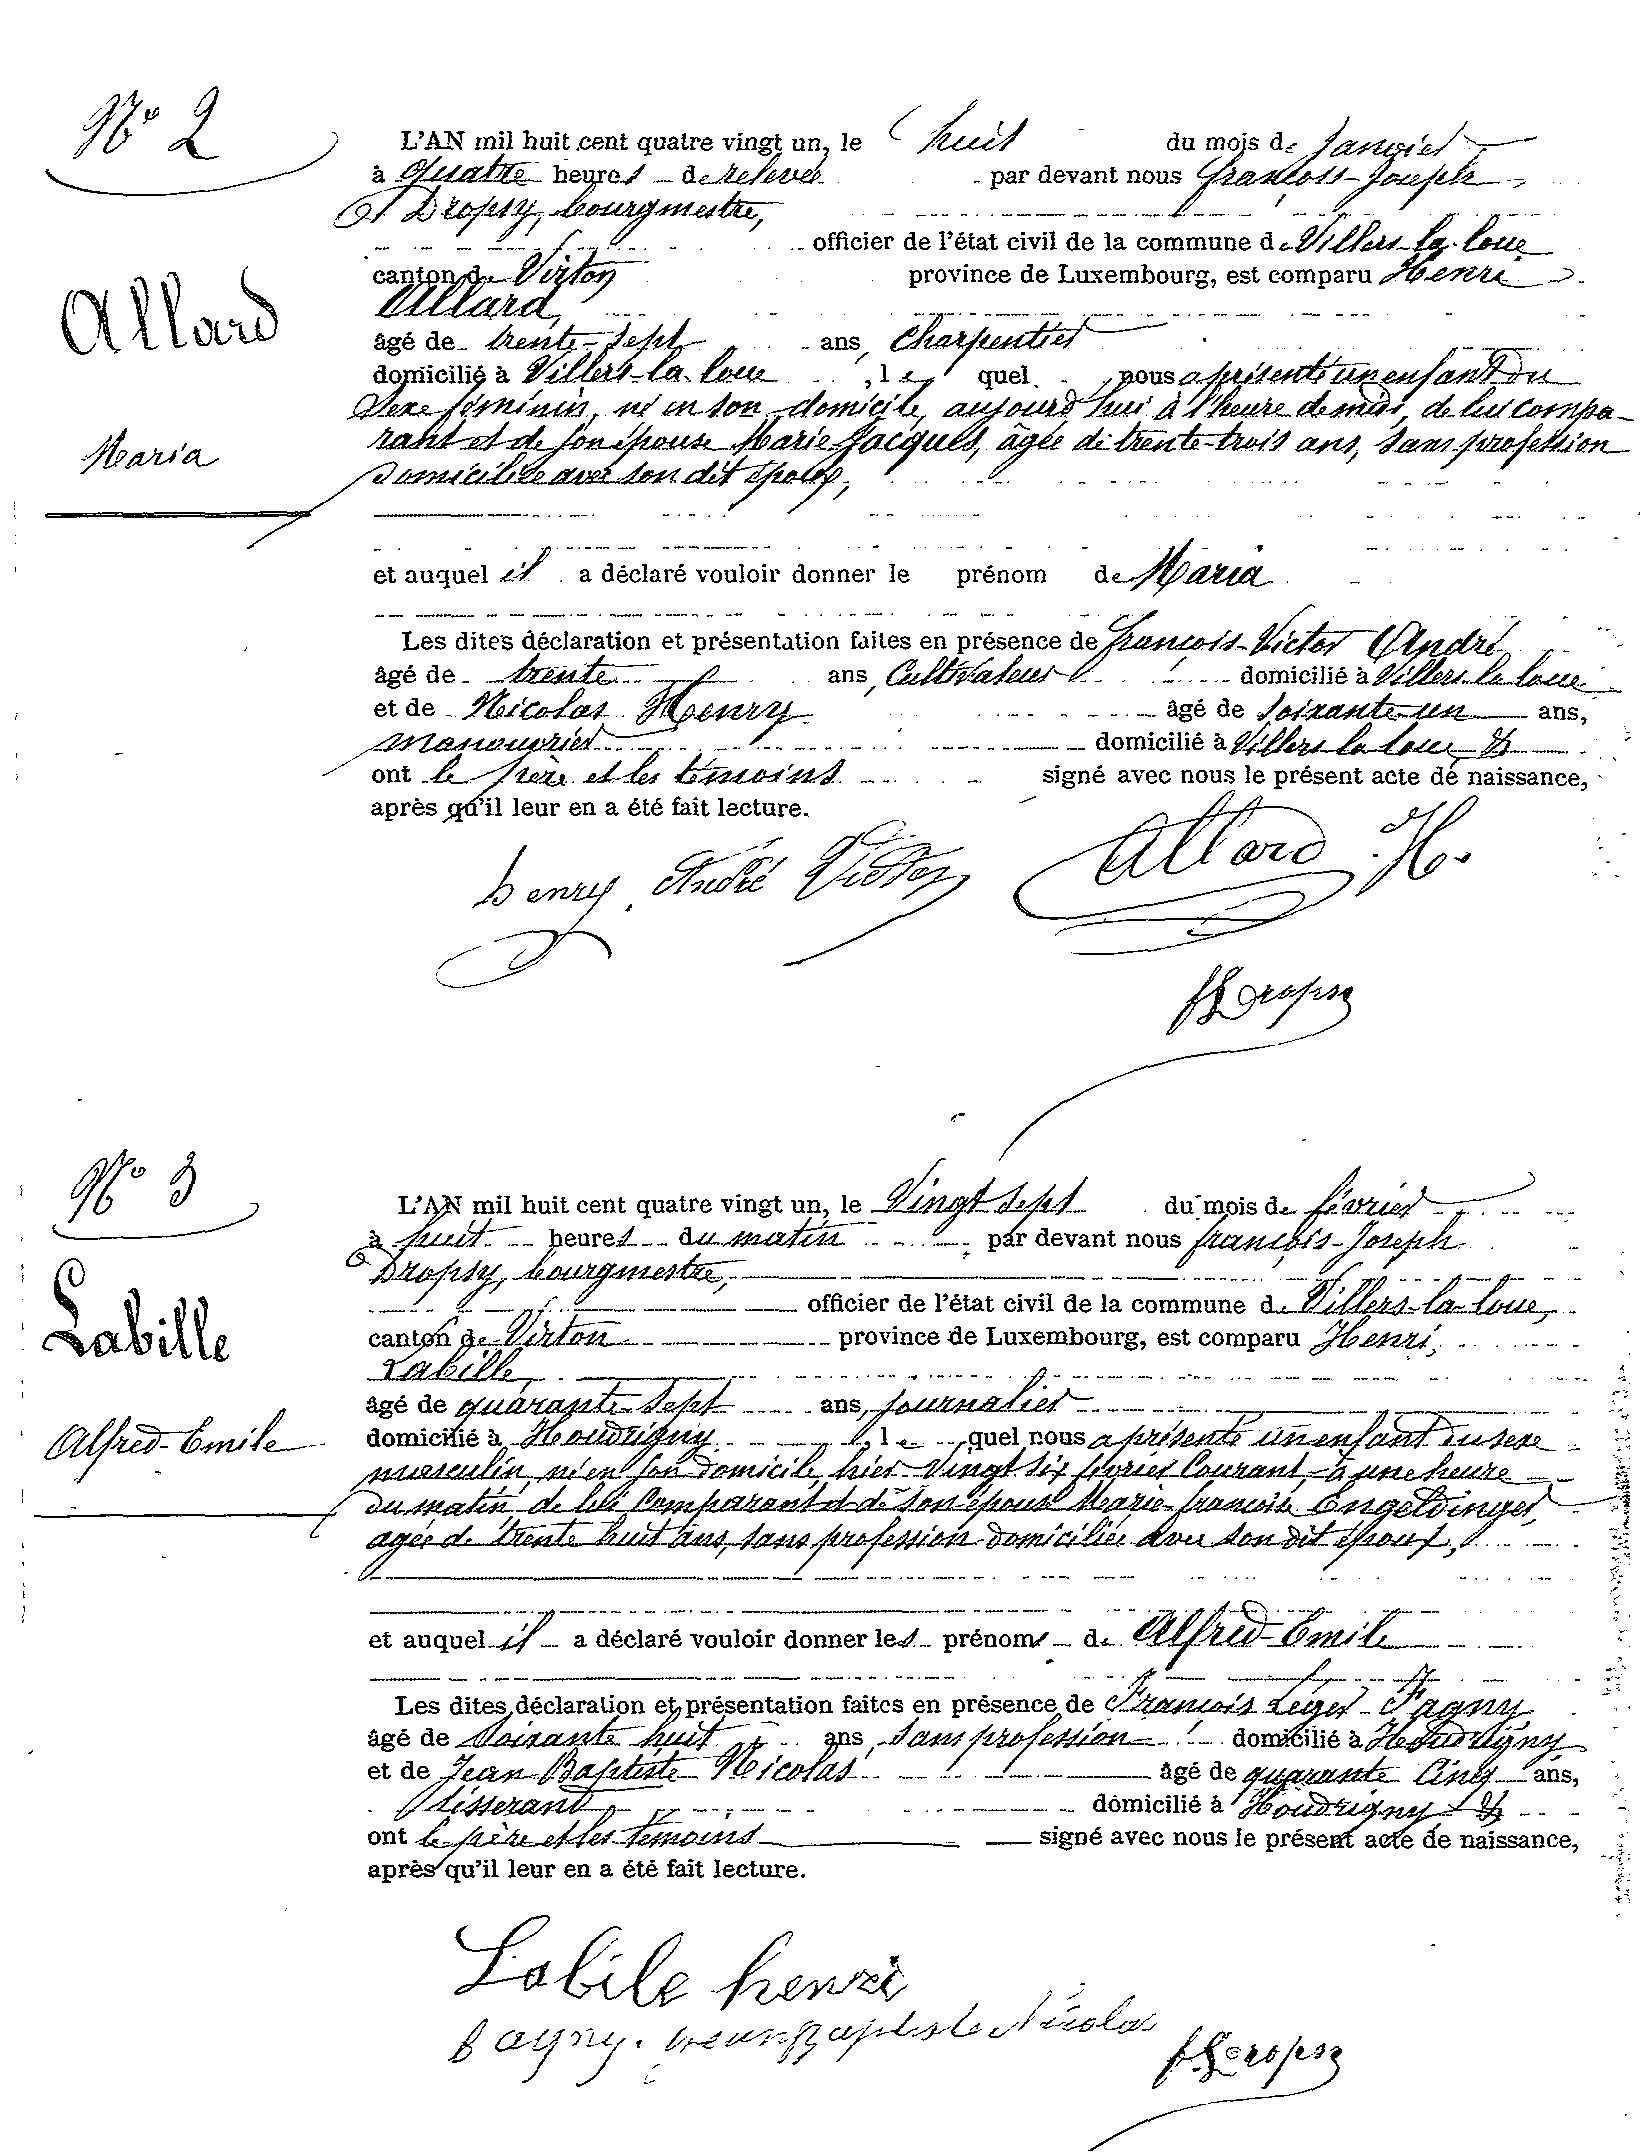 N° 2
Allard
Maria
L'AN mil huit cent quatre vingt un, le huit du mois de Janvier
à quatre heures de relevée par devant nous François-Joseph
Dropsy, bourgmestre,
officier de l'état civil de la commune de Villers-la-loue
canton de Virton province de Luxembourg, est comparu Henri
Allard,
âgé de trente-sept ans, Charpentier
domicilié à Villers-la-loue, le quel nous a présenté un enfant du
Sexe féminin, né en son domicile, aujourd'hui à l'heure de midi, de lui compa-
rant et de son épouse Marie Jacques, âgée de trente-trois ans, sans profession
domiciliée avec son dit époux,
et auquel il a déclaré vouloir donner le prénom de Maria
Les dites déclaration et présentation faites en présence de François-Victor André
âgé de trente ans, Cultivateur domicilié à Villers-la-loue
et de Nicolas Henry âgé de soixante-un ans,
manouvrier domicilié à Villers-la-loue &
ont le père et les témoins signé avec nous le présent acte de naissance,
après qu'il leur en a été fait lecture.
henry André Victor Allard H.
Dropsy
N° 3
Labille
Alfred-Emile
L'AN mil huit cent quatre vingt un, le Vingt sept du mois de février
à huit heures du matin par devant nous françois-Joseph
Dropsy, bourgmestre,
officier de l'état civil de la commune de Villers-la-loue,
canton de Virton province de Luxembourg, est comparu Henri,
Labille,
âgé de quarante-sept ans, journalier
domicilié à Houdrigny, le quel nous a présenté un enfant du sexe
masculin, né en son domicile, hier Vingt six février Courant, à une heure
du matin, de lui Comparant et de son épouse Marie-françoise Engeldinger,
agée de trente huit ans, sans profession domiciliée avec son dit époux,
et auquel il a déclaré vouloir donner les prénoms de Alfred-Emile
Les dites déclaration et présentation faites en présence de François Léger Fagny
âgé de Soixante huit ans, sans profession domicilié à Houdrigny
et de Jean Baptiste Nicolas âgé de quarante Cinq ans,
tisserand domicilié à Houdrigny &
ont le père et les témoins signé avec nous le présent acte de naissance,
après qu'il leur en a été fait lecture.
Labile henri
fagny. Jean Baptiste Nicolas
Dropsy